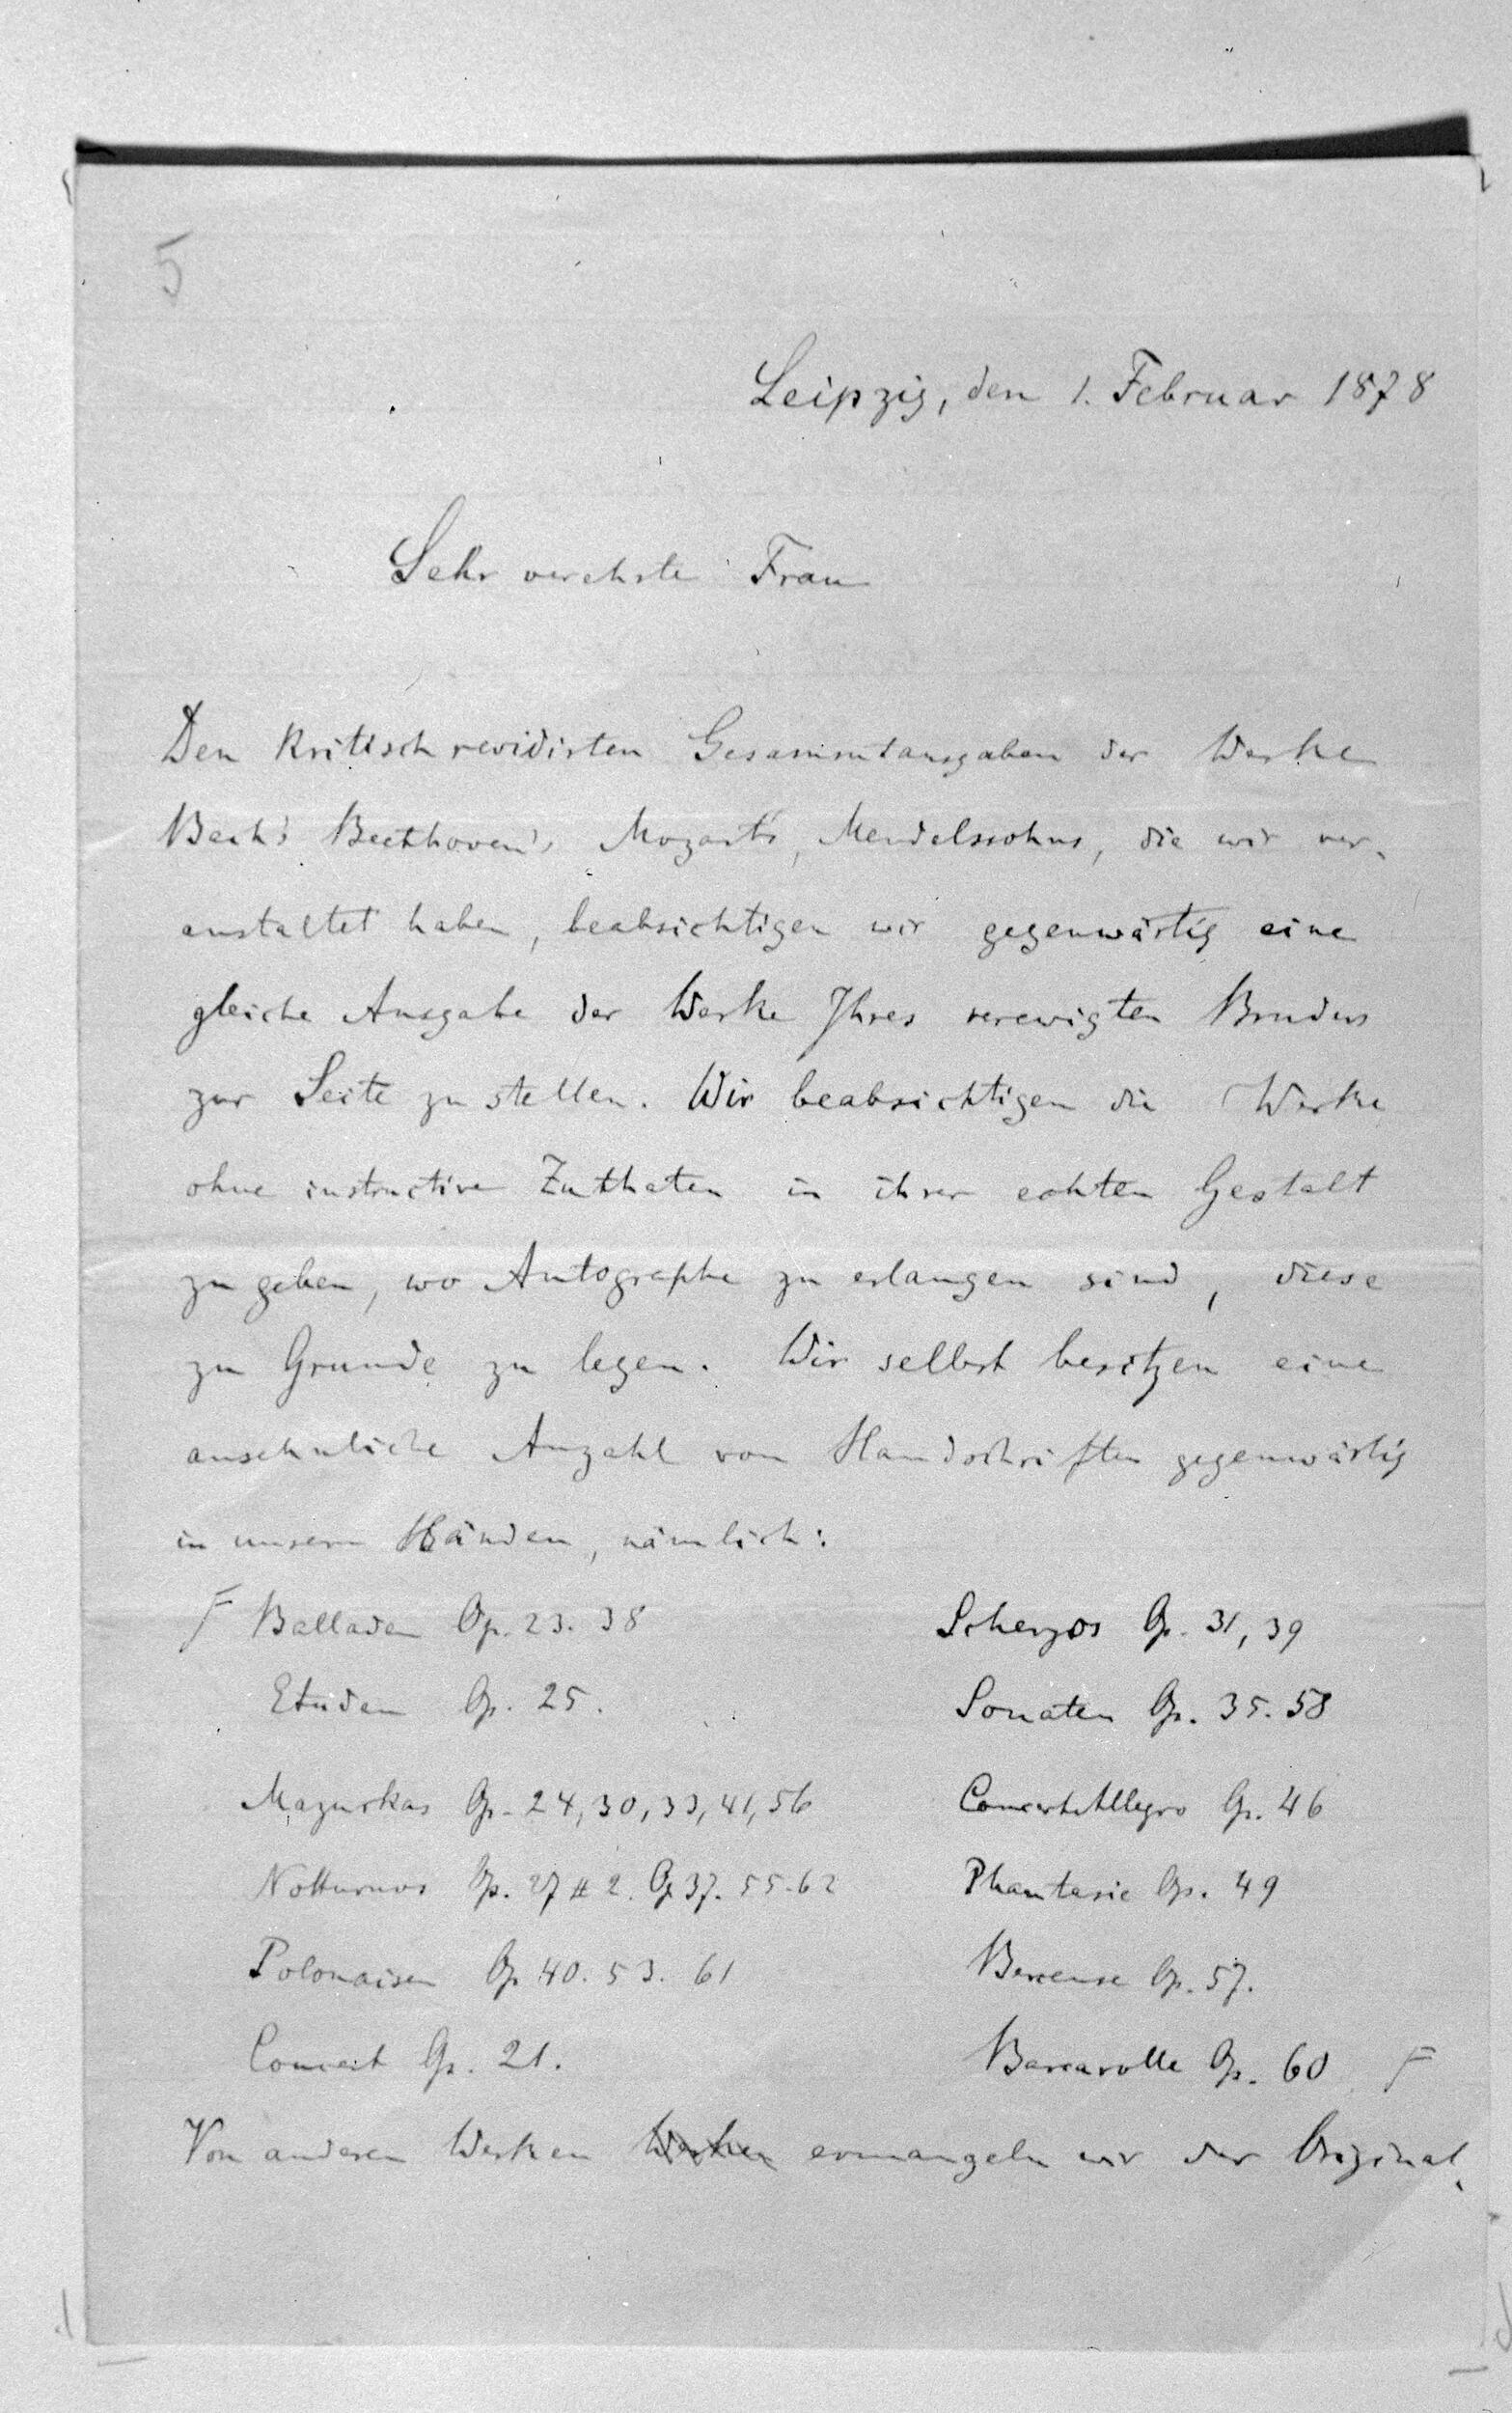 5
Leipzig, den 1. Februar 1878
Sehr verehrte Frau
Den kritisch revidirten Gesammtausgaben der Werke
Bach's Beethoven's Mozart's, Mendelssohns, die wir ver-
anstaltet haben, beabsichtigen wir gegenwärtig eine
gleiche Ausgabe der Werke Ihres verewigten Bruders
zur Seite zu stellen. Wir beabsichtigen die Werke
ohne instructive Zuthaten in ihrer echten Gestalt
zu geben, wo Autographe zu erlangen sind, diese
zu Grunde zu legen. Wir selbst besitzen eine
ansehnliche Anzahl von Handschriften gegenwärtig
in unsern Händen, nämlich:
F Balladen Op. 23. 38 Scherzos Op. 31, 39
Etuden Op. 25. Sonaten Op. 35. 58
Mazurkas Op. 24, 30, 33, 41, 56 ConcertAllegro Op. 46
Notturnos Op. 27 # 2. Op 37. 55. 62 Phantasie Op. 49
Polonaisen Op 40. 53. 61 Berceuse Op. 57.
Concert Op. 21. Barcarolle Op. 60 F
Von anderen Werken Werken ermangeln wir der Original-